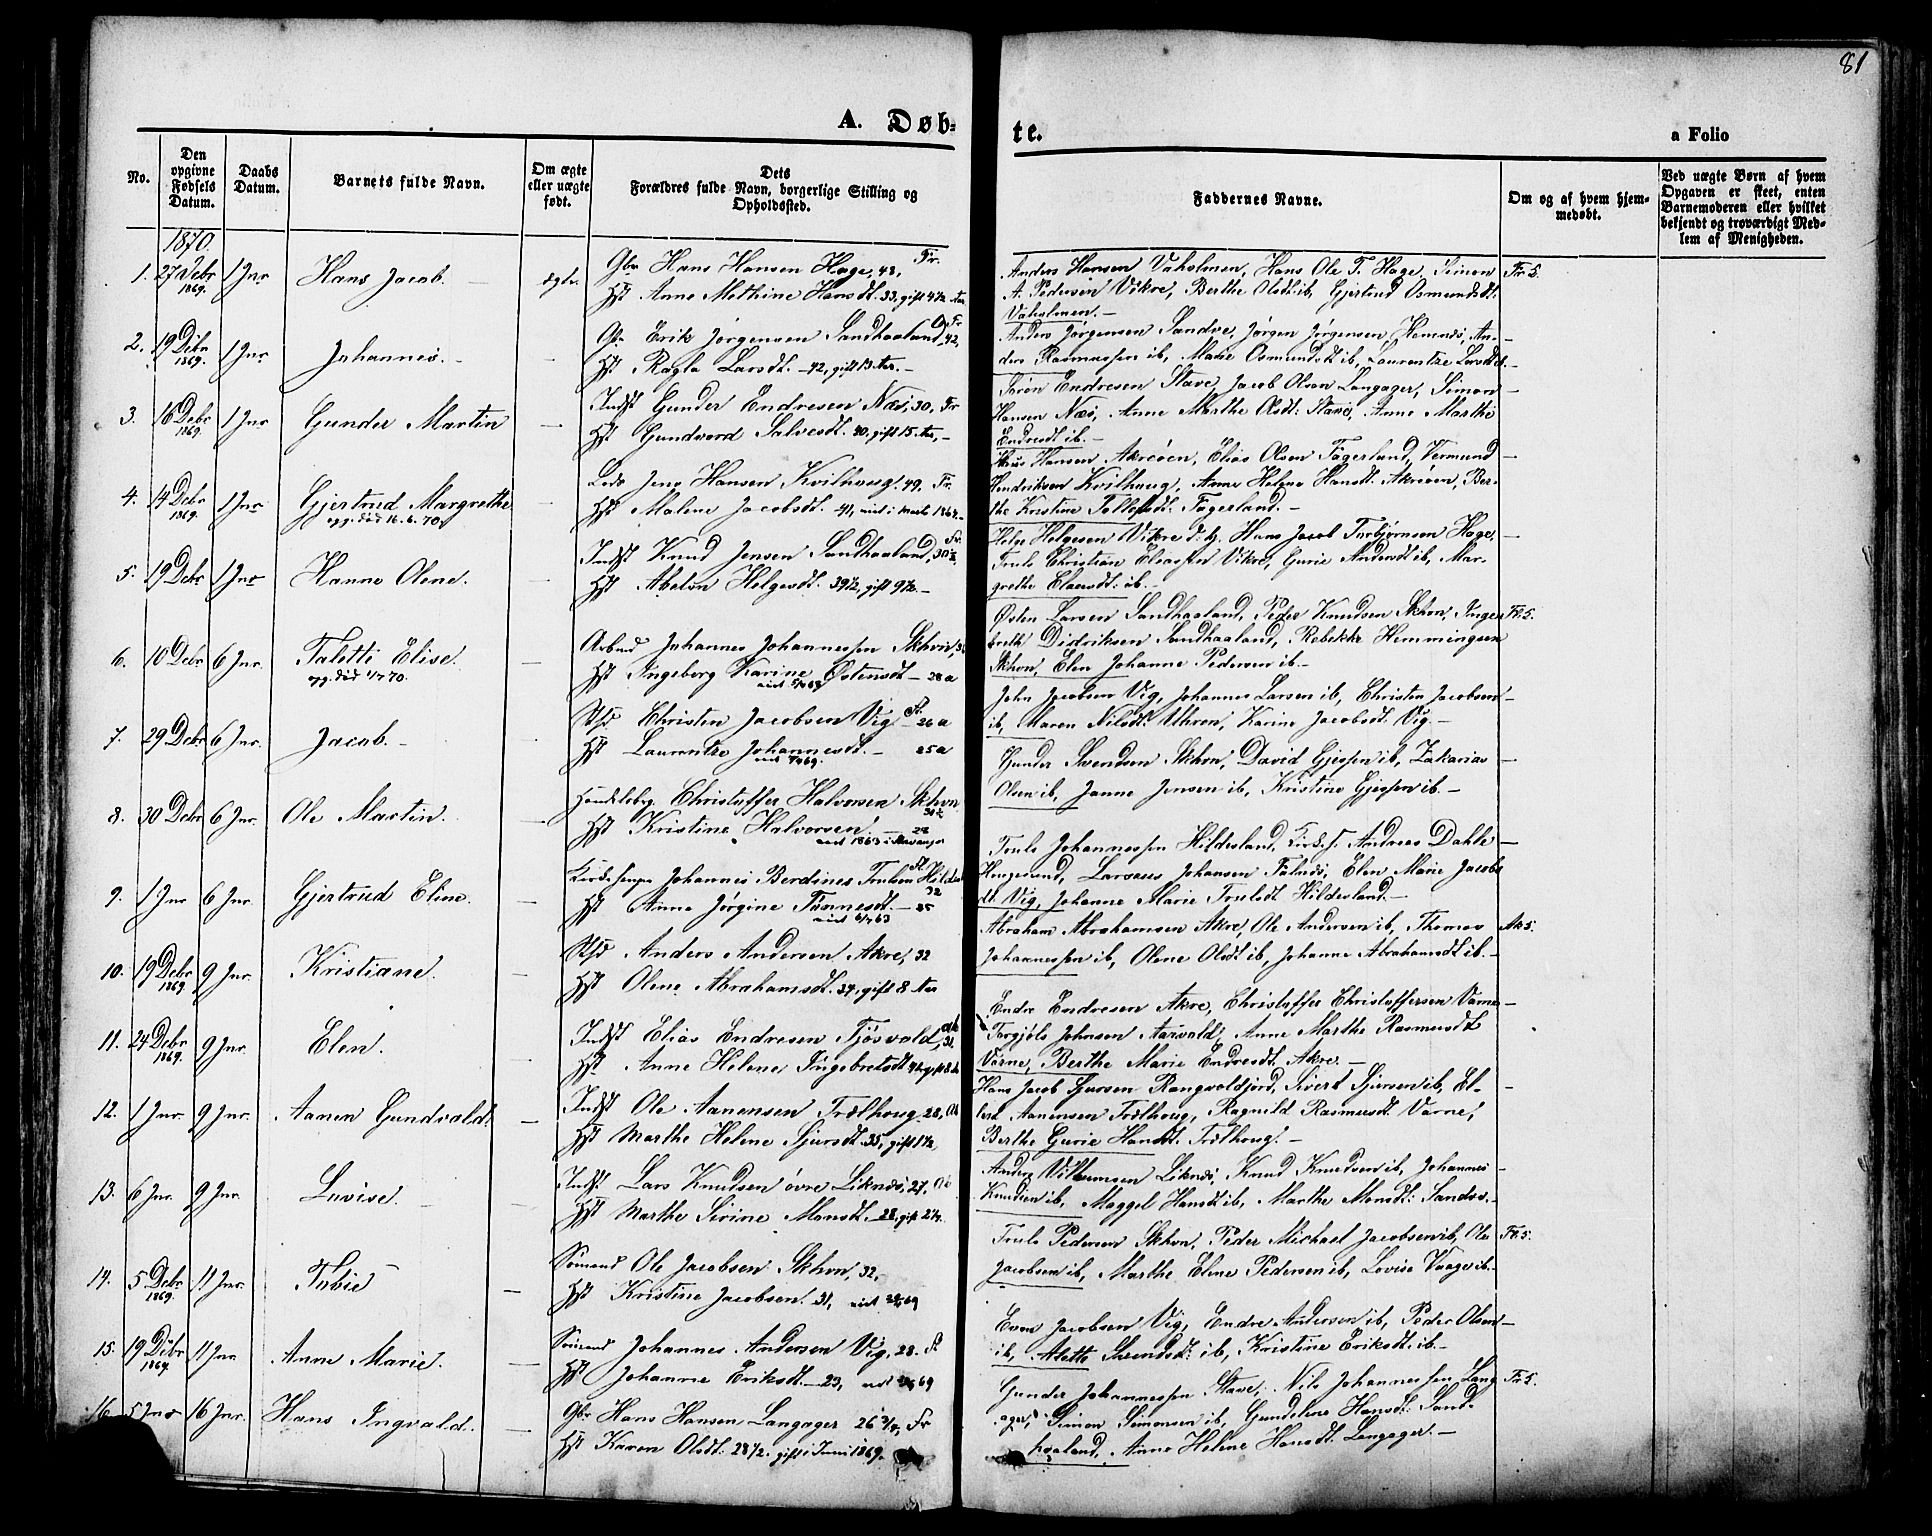 81
A. Døb=
te.
a Folio
No.
Den opgivne Fødsels Datum.
Daabs Datum.
Barnets fulde Navn.
Om ægte eller uægte født.
Dets Forældres fulde Navn, borgerlige Stilling og Opholdssted.
Faddernes Navne.
Om og af hvem hjemmedøbt.
Ved uægte Børn af hvem Opgaven er skeet, enten Barnemoderen eller hvilket bekjendt og troværdigt Medlem af Menigheden.
1870.
1. 27 Debr 1869. 1 Jnr Hans Jacob. ægte.
Gbr Hans Hansen Hage, 43, Fr.
Hst Anne Mathine Hansdt. 33, gift 4½ Aar
Anders Hansen Vaholmen, Hans Ole T. Hage, Simon
A. Pedersen Vikre, Berthe Olsdt. ib, Gjertrud Osmundsdt.
Vaholmen. —
Fr. 5.
2. 19 Debr 1869. 1 Jnr Johannes. —
Gbr Erik Jørgensen Sandhaaland, 42, Fr
Hst Ragla Larsdt. — 42, gift 13 Aar. —
Anders Jørgensen Sandve, Jørgen Jørgensen, Hemnæs, An-
ders Rasmussen ib, Marie Osmundsdt ib, Laurentze Larsdt ib. —
3. 16 Debr 1869. 1 Jnr Gunder Martin —
Indst Gunder Endresen Næs, 30, Fr
Hst Gundvord Salvesdt. 40, gift 15 Aar, —
Søren Endresen Stave, Jacob Olsen Langager, Simon
Hansen Næs, Anne Marthe Olsdt: Stave, Anne Marthe
Endresdt ib. —
4. 14 Debr 1869. 1 Jnr Gjertrud Margrethe —
opg. død 16.6.70
Jens Hansen Kvilhoug. 49, Fr.
Hst Malene Jacobsdt. 41,
Hansen Akreøen, Elias Olsen Fagerland, Vermund
Hendriksen Kvilhoug, Anne Helene Hansdt. Akreøen, Ber-
the Kristine Tollefsdt. Fagerland. —
5. 19 Debr 1 Jnr Hanne Olene. —
Indst Knud Jensen Sandhaaland, Fr.
Hst Abelon Helgesdt. 39½, gift 9½. —
Helge Helgesen Vikre d. y. Hans Jacob Torbjørnsen Hage,
Truls Christian Eliassen Vikre, Gurie Andersdt ib, Mar-
grethe Elansdt: ib. —
6. 10 Debr 6 Jnr. Taletti Elise. —
opg. død 1/7 70.
Arbmd Johannes Johannessen Skhvn,
Hst Ingeborg Karine Østensdt — 28 a
Østen Larsen Sandhaaland, Peder Knudsen Skhvn, Inge-
breth Didriksen Sandhaaland, Rebekke Hemmingsen
Skhvn, Elen Johanne Pedersen ib. —
Fr. 5.
7. 29 Debr 6 Jnr. Jacob. —
Christen Jacobsen Vig, Fr. 26 a
Hst Laurentze Johannesdt. — 25 a
John Jacobsen Vig, Johannes Larsen ib, Christen Jacobsen
ib, Maren Nilsdt. Uthren, Karine Jacobsdt. Vig. —
8. 30 Debr 6 Jnr. Ole Martin. —
Handelsbrg. Christoffer Halvorsen Skhvn
Hst Kristine Halvorsen. — 28
viet 1863 i Stavanger
Gunder Svendsen Skhvn, David Gjessen ib, Zakarias
Olsen ib, Janne Jensen ib, Kristine Gjessen ib. —
9. 1 Jnr 6 Jnr. Gjertrud Eline. —
Johannes Berdines Trulsen 32
Hst Anne Jørgine Tønnesdt. — 25
Truls Johannessen Hildesland, Andreas Dahle
Haugesund, Larsaus Johansen Falnæs, Elen Marie Jacobs
dt. Vig, Johanne Marie Trulsdt Hildesland. —
10. 19 Debr 1869. 9 Jnr. Kristiane. —
Anders Andersen Akre, 32
Hst Olene Abrahamsdt. 34, gift 8 Aar
Abraham Abrahamsen Akre, Ole Andersen ib, Thomas
Johannessen ib, Olene Olsdt ib, Johanne Abrahamsdt ib. —
Ak 5.
11. 24 Debr 1869. 9 Jnr. Elen. —
Indst Elias Endresen Tjøsvold, 31,
Hst. Anne Helene Ingebretsdt
Endre Endresen Akre, Christoffer Christoffersen Varne
Torgjøls Johnsen Aarvold, Anne Marthe Rasmusdt
Varne, Berthe Marie Endresdt. Akre. —
12. 1 Jnr. 9 Jnr. Aanen Gundvaldt. —
Indst Ole Aanensen Trælhoug, 28,
Hst Marthe Helene Sjursdt. 35, gift 1½
Hans Jacob Sjursen Rangvoldjord, Sivert Sjursen ib, El-
lert Aanensen Trælhoug, Ragnild Rasmusdt. Varne,
Berthe Gurie Hansdt. Trælhoug. —
13. 6 Jnr. 9 Jnr. Lovise. —
Indst Lars Knudsen øvre Liknæs, 27,
Hst Marthe Serine Monsdt. 28, gift 2¼.
Anders Villumsen Liknæs, Knud Knudsen ib, Johannes
Knudsen ib, Maggel Hansdt ib, Marthe Monsdt: Sandve. —
14. 5 Debr 1869. 11 Jnr. Tobie —
Sømand Ole Jacobsen Skhvn, 32,
Hst Kristine Jacobsen. 31,
Truls Pedersen Skhvn, Peder Michael Jacobsen ib, Ole
Jacobsen ib, Marthe Eline Pedersen ib, Lovise Vaage ib. —
Fr. 5.
15. 19 Debr 1869. 11 Jnr Anne Marie. —
Sømand Johannes Andersen Vig, 28.
Hst Johanne Eriksdt. — 23,
Even Jacobsen Vig, Endre Andersen ib, Peder Olsen
ib, Alette Svendsdt: ib, Kristine Eriksdt. ib. —
16. 5 Jnr 16 Jnr. Hans Ingvald. —
Gbr Hans Hansen Langager 26 3/4, Fr
Hst Karen Olsdt. 28½. gift i Juni 1869.
Gunder Johannessen Stave, Nils Johannessen Lang
ager, Simon Simonsen ib, Gundeline Hansdt: Sand-
haaland, Anne Helene Hansdt. Langager. —
Fr. 5.